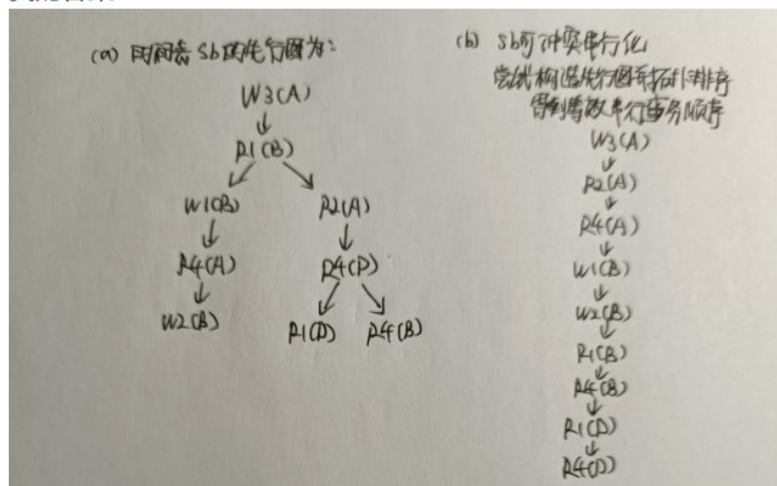 (a) 时间表 Sb 的先行图为：
W3(A)
↓
R1(B)
↙ ↘
W1(B) R2(A)
↓ ↓
R4(A) R4(D)
↓ ↙ ↘
W2(B) R1(D) R4(B)
(b) Sb可冲突串行化
尝试构造先行图和拓扑排序
得到等效串行事务顺序
W3(A)
↓
R2(A)
↓
R4(A)
↓
W1(B)
↓
W2(B)
↓
R1(B)
↓
R4(B)
↓
R1(D)
↓
R4(D)